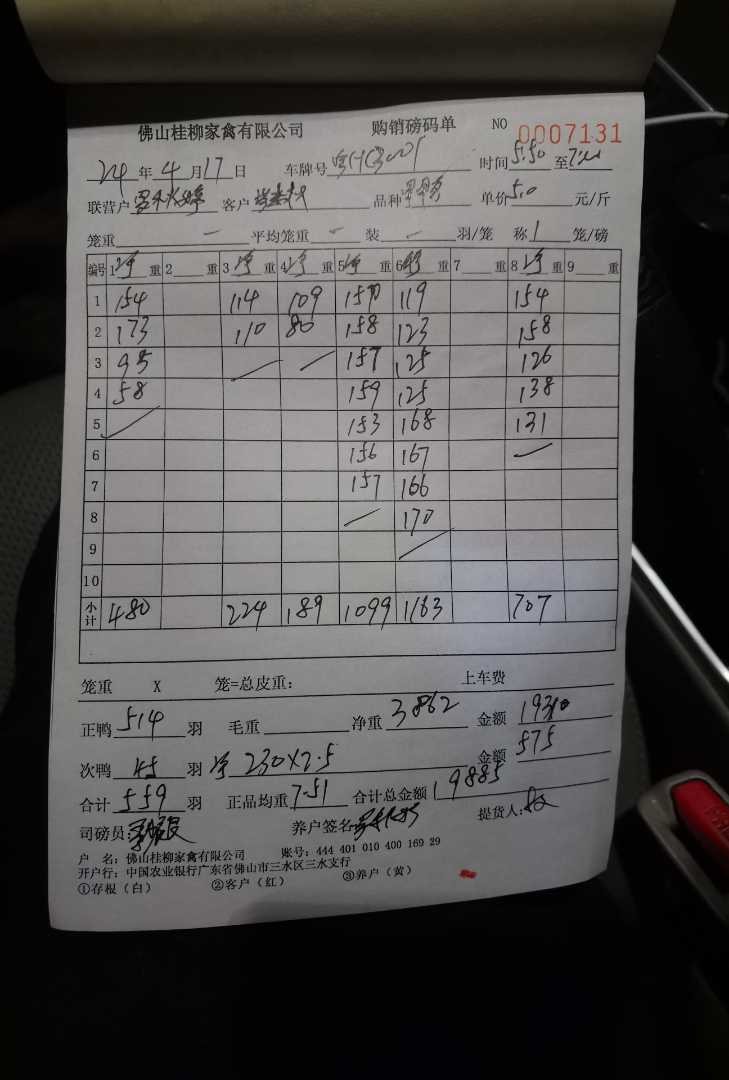 佛山桂柳家禽有限公司 购销磅码单 NO 0007131
24年4月17日 车牌号 时间5:50至
联营户 客户 品种 单价5.0元/斤
笼重 - 平均笼重 - 装 - 羽/笼 称1笼/磅
编号 1净重 2重 3净重 4净重 5净重 6净重 7重 8净重 9重
1 154 114 109 159 119 154
2 173 110 80 158 123 158
3 95 157 125 126
4 58 159 125 138
5 153 168 131
6 156 167
7 157 166
8 170
9
10
小计 480 224 189 1099 1163 707
笼重 X 笼=总皮重: 上车费
正鸭514羽 毛重 净重3862 金额19310
次鸭45羽 净230×2.5 金额575
合计559羽 正品均重7.51 合计总金额19885
司磅员: 养户签名 提货人:
户 名: 佛山桂柳家禽有限公司 账号: 444 401 010 400 169 29
开户行: 中国农业银行广东省佛山市三水区三水支行
①存根(白) ②客户(红) ③养户(黄)